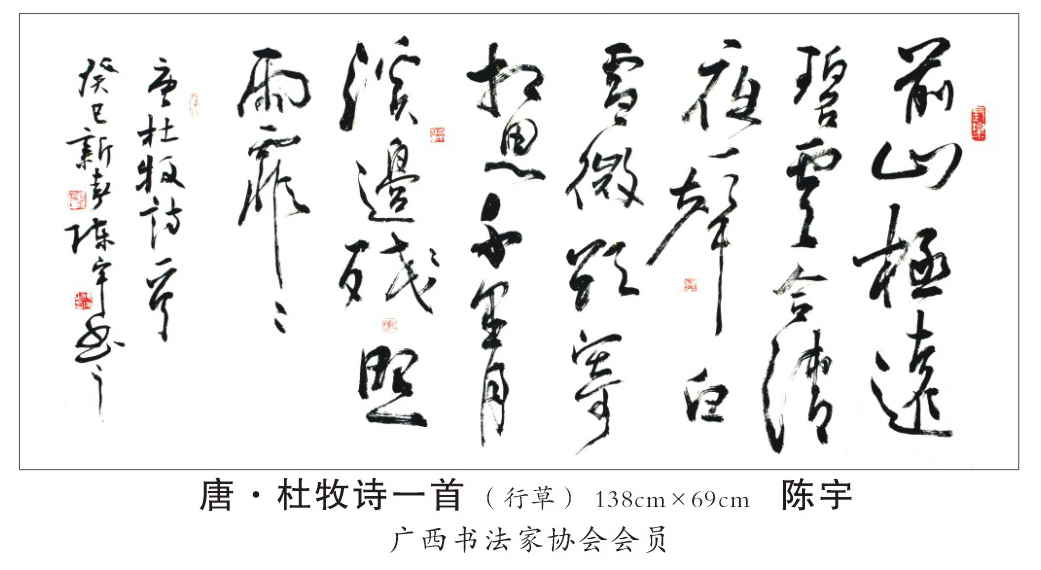 前山極遠
碧雲合清
夜一聲白
雪微欲寄
相思千里月
溪邊殘照
雨霏〻
唐杜牧詩一首
癸巳新春陳宇書
唐·杜牧诗一首（行草）138cm×69cm 陈宇
广西书法家协会会员